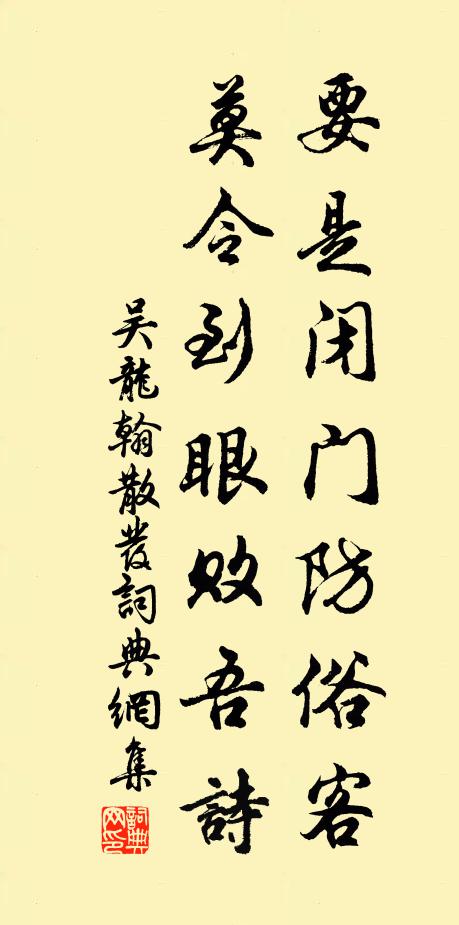 要是闭门防俗客
莫令到眼败吾詩
吴龍翰散发詞典網集
詞典网印